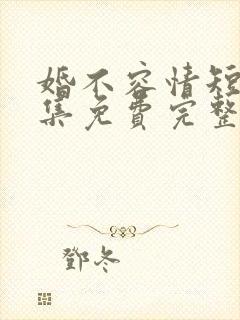 婚不容情短
集免费完整
鄧冬